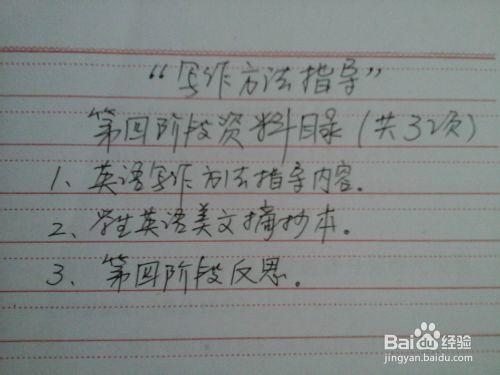 “写作方法指导”
第四阶段资料目录（共32页）
1、英语写作方法指导内容。
2、学生英语美文摘抄本。
3、第四阶段反思。
Baidu经验
jingyan.baidu.com